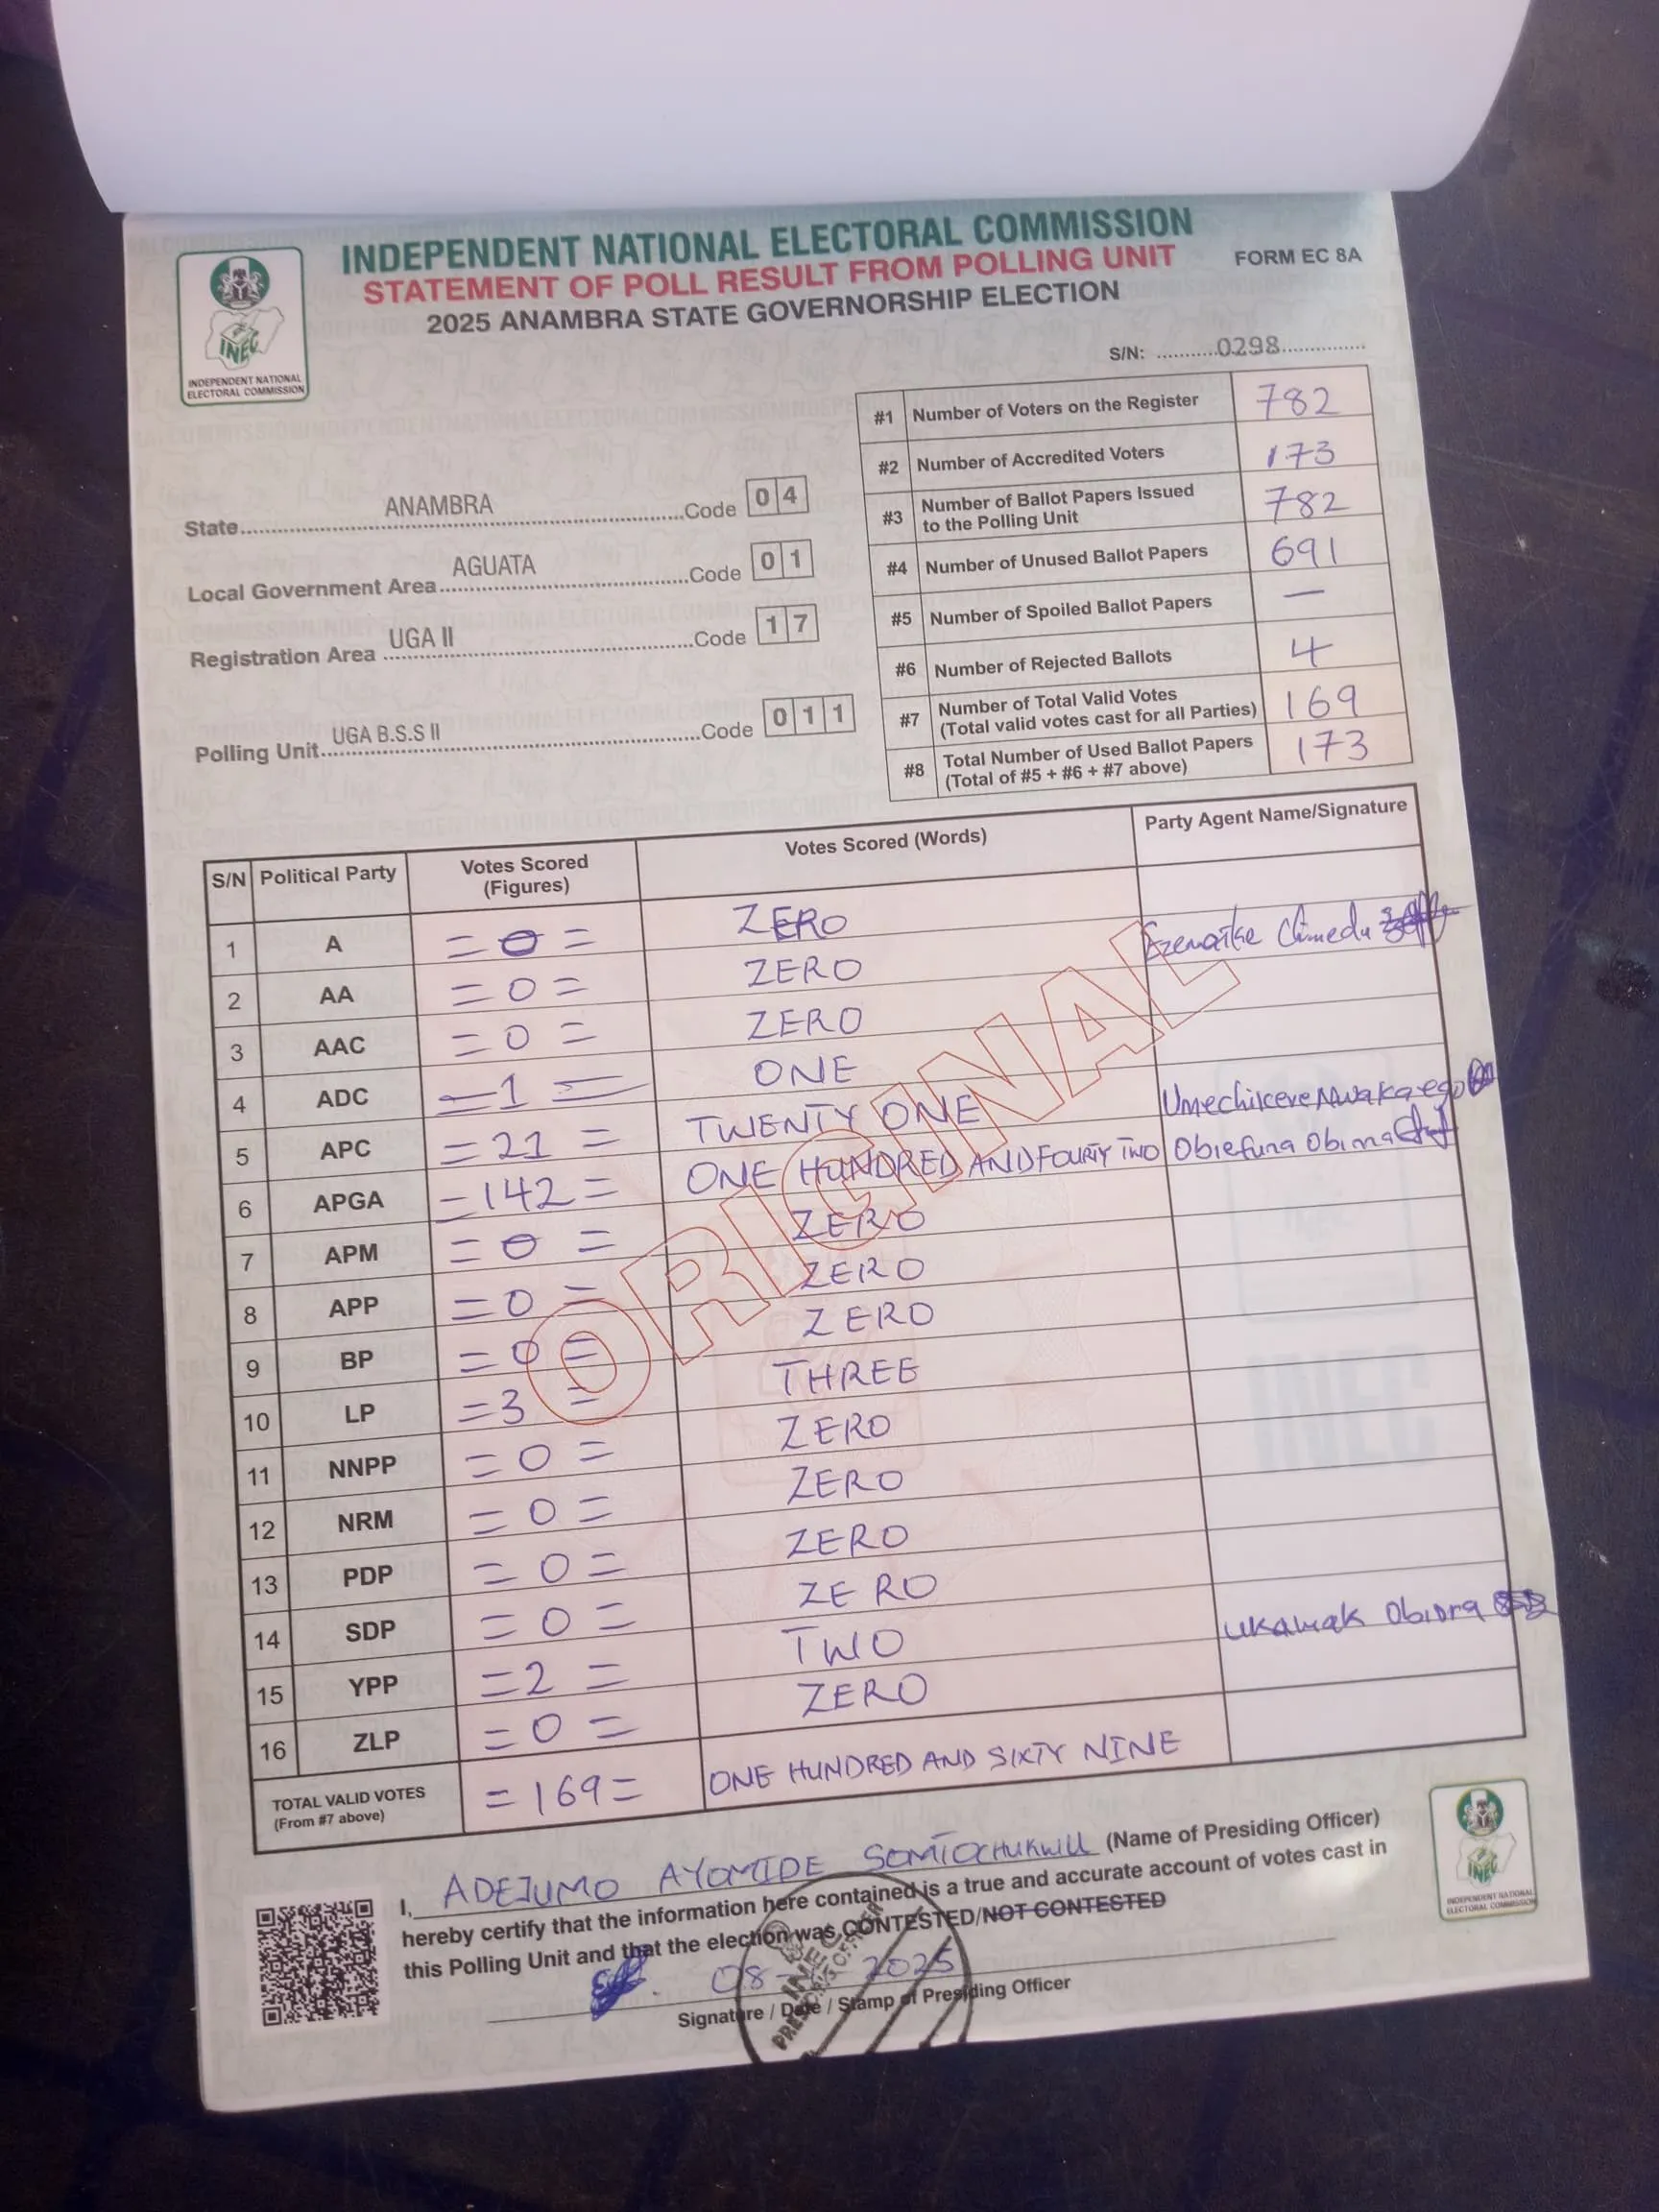 INDEPENDENT NATIONAL ELECTORAL COMMISSION
STATEMENT OF POLL RESULT FROM POLLING UNIT
FORM EC 8A
2025 ANAMBRA STATE GOVERNORSHIP ELECTION
INEC
INDEPENDENT NATIONAL
ELECTORAL COMMISSION
S/N: ...........0298..............
State ANAMBRA Code 0 4
Local Government Area AGUATA Code 0 1
Registration Area UGA II Code 1 7
Polling Unit UGA B.S.S II Code 0 1 1
#1 Number of Voters on the Register 782
#2 Number of Accredited Voters 173
#3 Number of Ballot Papers Issued to the Polling Unit 782
#4 Number of Unused Ballot Papers 691
#5 Number of Spoiled Ballot Papers —
#6 Number of Rejected Ballots 4
#7 Number of Total Valid Votes (Total valid votes cast for all Parties) 169
#8 Total Number of Used Ballot Papers (Total of #5 + #6 + #7 above) 173
S/N Political Party Votes Scored (Figures) Votes Scored (Words) Party Agent Name/Signature
1 A =0= ZERO
2 AA =0= ZERO
3 AAC =0= ZERO
4 ADC =1= ONE
5 APC =21= TWENTY ONE
6 APGA =142= ONE HUNDRED AND FOURTY TWO Obiefuna Obinna
7 APM =0= ZERO
8 APP =0= ZERO
9 BP =0= ZERO
10 LP =3= THREE
11 NNPP =0= ZERO
12 NRM =0= ZERO
13 PDP =0= ZERO
14 SDP =0= ZERO
15 YPP =2= TWO Obiora
16 ZLP =0= ZERO
TOTAL VALID VOTES (From #7 above) =169= ONE HUNDRED AND SIXTY NINE
ORIGINAL
I, ADEJUMO AYOMIDE SOMTOCHUKWU (Name of Presiding Officer)
hereby certify that the information here contained is a true and accurate account of votes cast in
this Polling Unit and that the election was CONTESTED/NOT CONTESTED
2025
Signature / Date / Stamp of Presiding Officer
INEC
INDEPENDENT NATIONAL
ELECTORAL COMMISSION